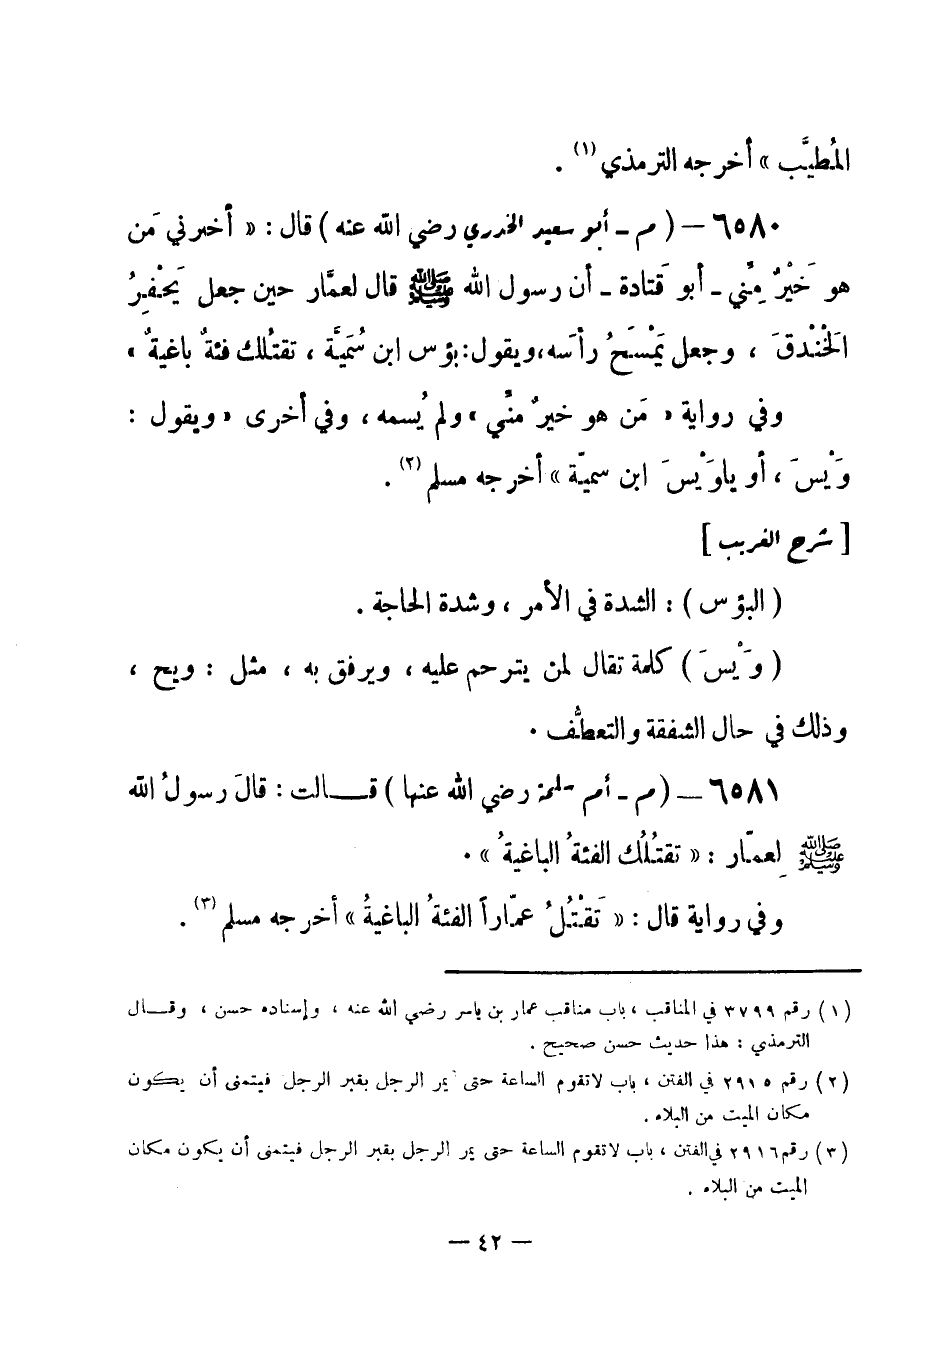 المُطيَّب » أخرجه الترمذي (١) .
٦٥٨٠ – ( م - أبو سعيد الخدري رضي الله عنه ) قال : « أخبرني مَن
هو خَيْرٌ مِنِّي - أبو قَتادة - أن رسول الله ﷺ قال لعمَّار حين جعل يَحْفِرُ
الَخْنْدقَ ، وجعل يَمْسَحُ رأسَه، ويقول: بؤس ابن سُمَيَّة ، تقتُلك فئةٌ باغيةٌ »
وفي رواية « مَن هو خيرٌ منِّي » ولم يُسمه ، وفي أخرى « ويقول :
وَيْسَ ، أو ياوَيْسَ ابن سميّة » أخرجه مسلم (٢) .
[ شرح الغريب ]
( البؤس ) : الشدة في الأمر ، وشدة الحاجة .
( وَيْسَ ) كلمة تقال لمن يترحم عليه ، ويرفق به ، مثل : ويح ،
وذلك في حال الشفقة والتعطُّف .
٦٥٨١ – ( م - أم سلمة رضي الله عنها ) قـــالت : قالَ رسولُ الله
ﷺ لِعمّار : « تقتُلُك الفئةُ الباغيةُ » .
وفي رواية قال : « تَقْتُلُ عمّاراً الفئةُ الباغيةُ » أخرجه مسلم (٣) .
(١) رقم ٣٧٩٩ في المناقب ، باب مناقب عمار بن ياسر رضي الله عنه ، وإسناده حسن ، وقـــال
الترمذي : هذا حديث حسن صحيح .
(٢) رقم ٢٩١٥ في الفتن ، باب لاتقوم الساعة حتى يمر الرجل بقبر الرجل فيتمنى أن يكون
مكان الميت من البلاء .
(٣) رقم ٢٩١٦ في الفتن ، باب لاتقوم الساعة حتى يمر الرجل بقبر الرجل فيتمنى أن يكون مكان
الميت من البلاء .
– ٤٢ –